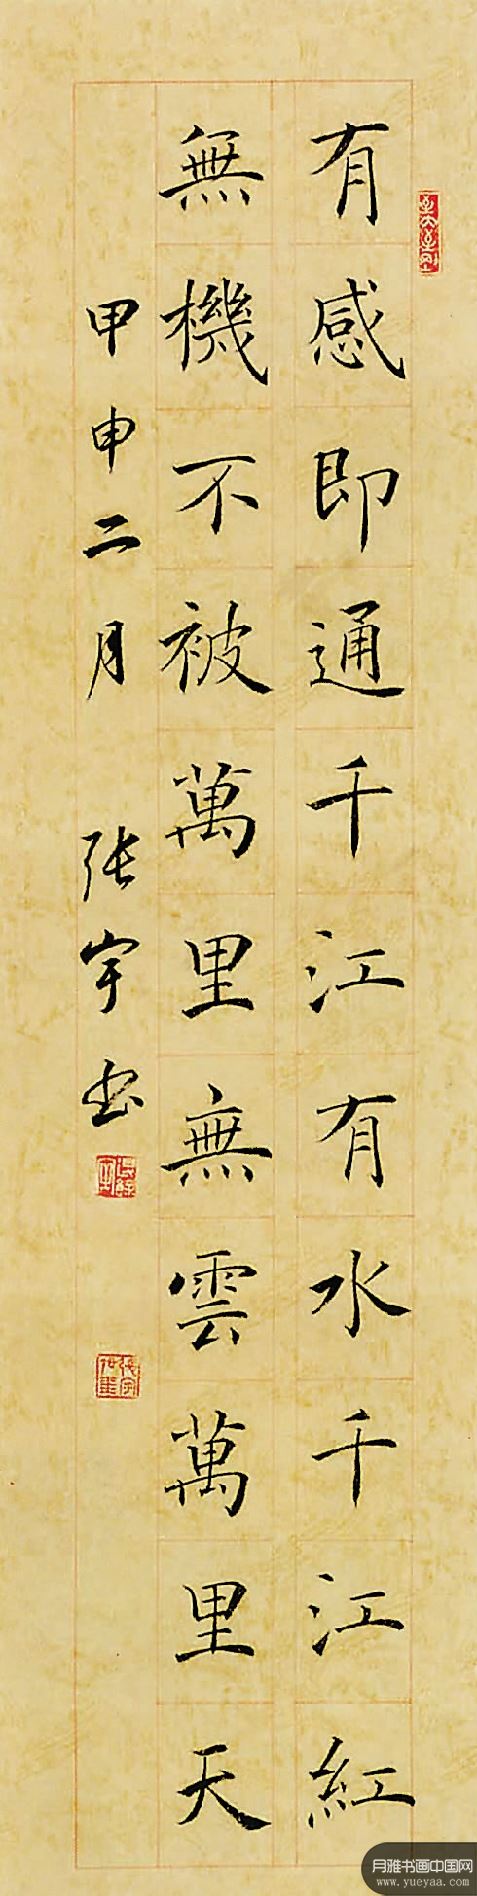 有感即通千江有水千江紅
無機不被萬里無雲萬里天
甲申二月 张宇书
月雅书画中国网
www.yueyaa.com